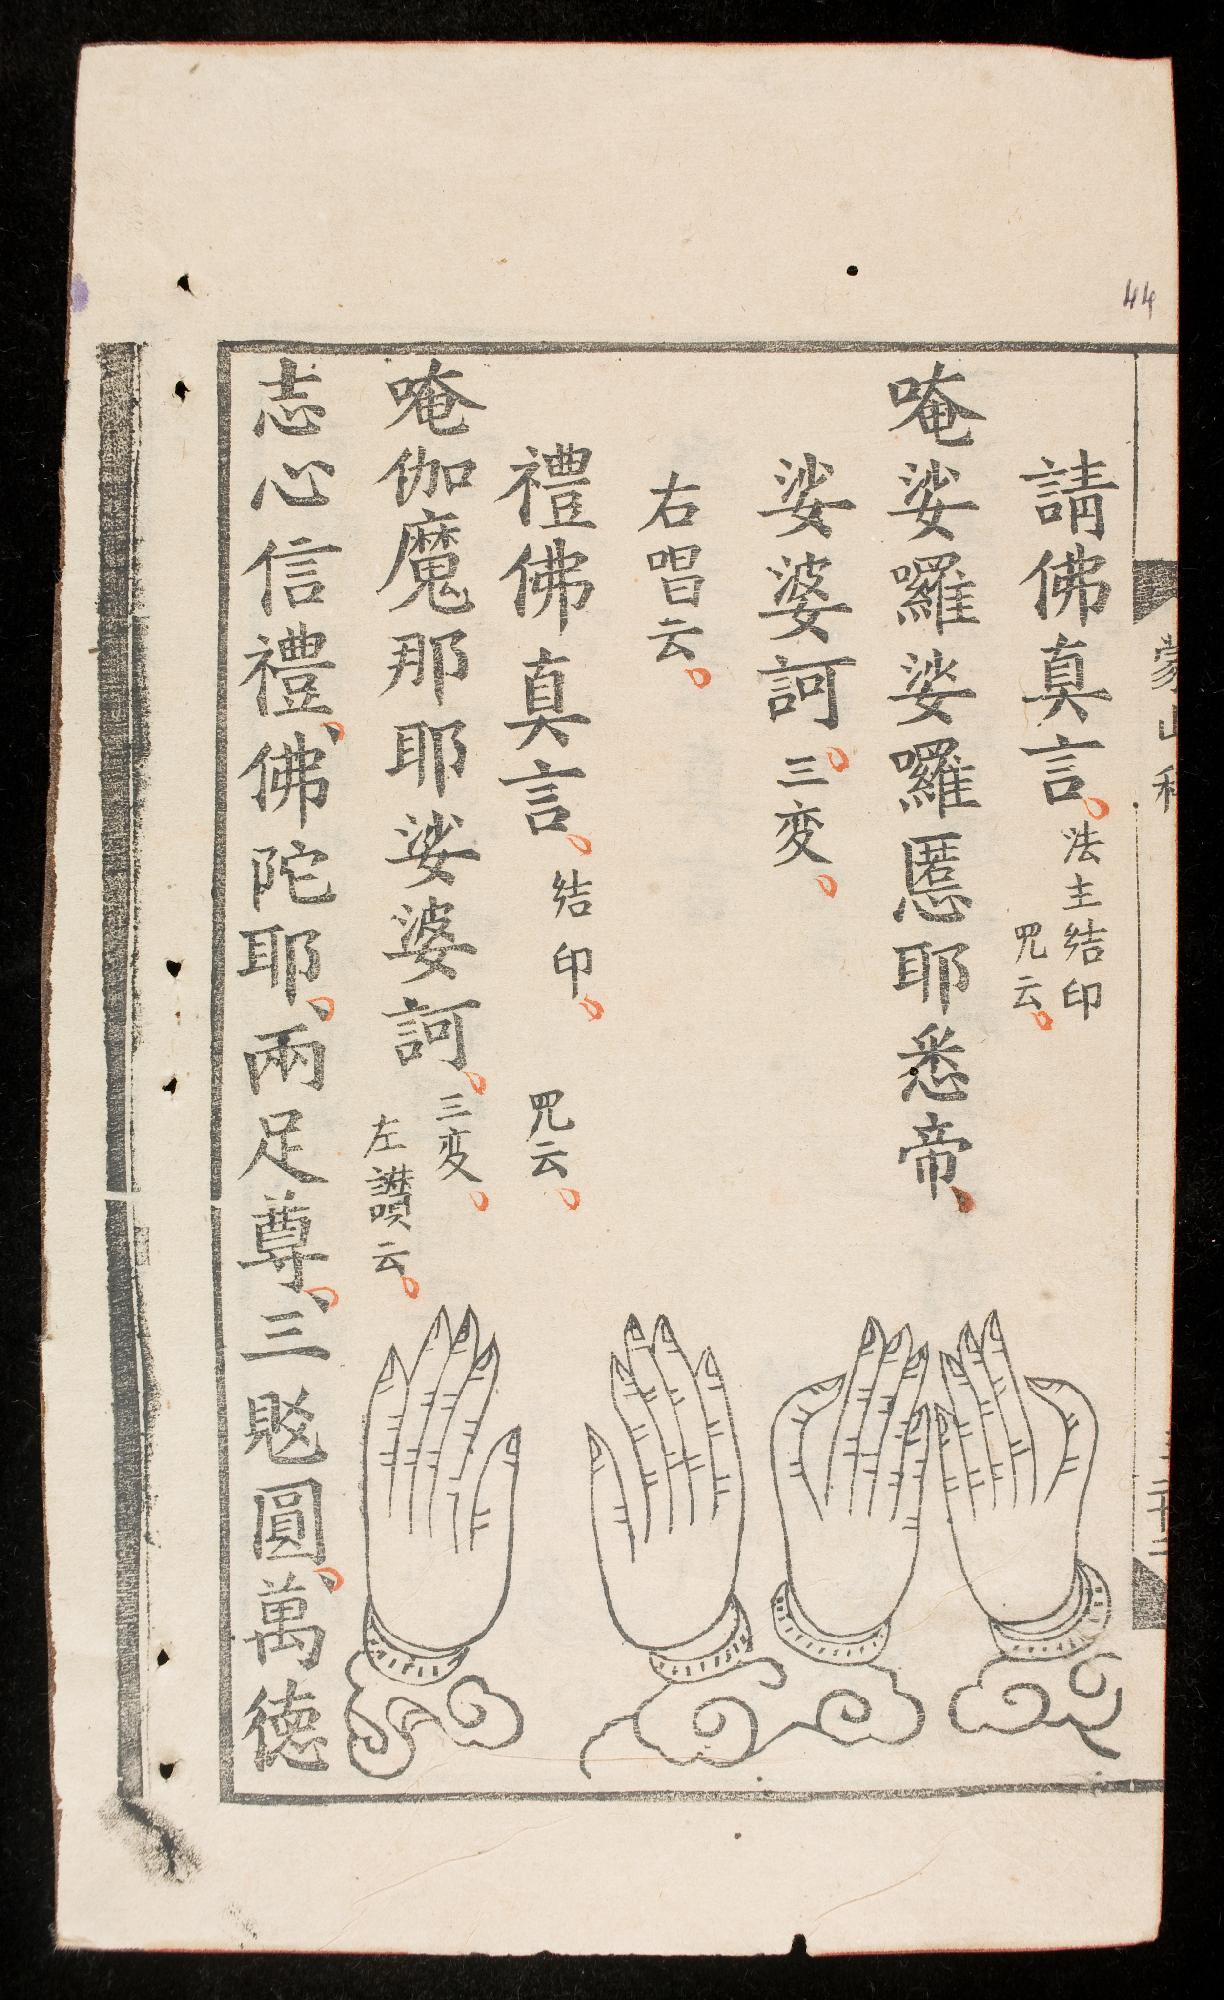 44
請佛真言、法主結印
咒云
唵娑囉娑囉慝耶悉帝、
娑婆訶三变
右唱云
禮佛真言、結印 咒云
唵伽魔那耶娑婆訶三变
左讚云
志心信禮、佛陀耶、兩足尊、三覎圓、萬德